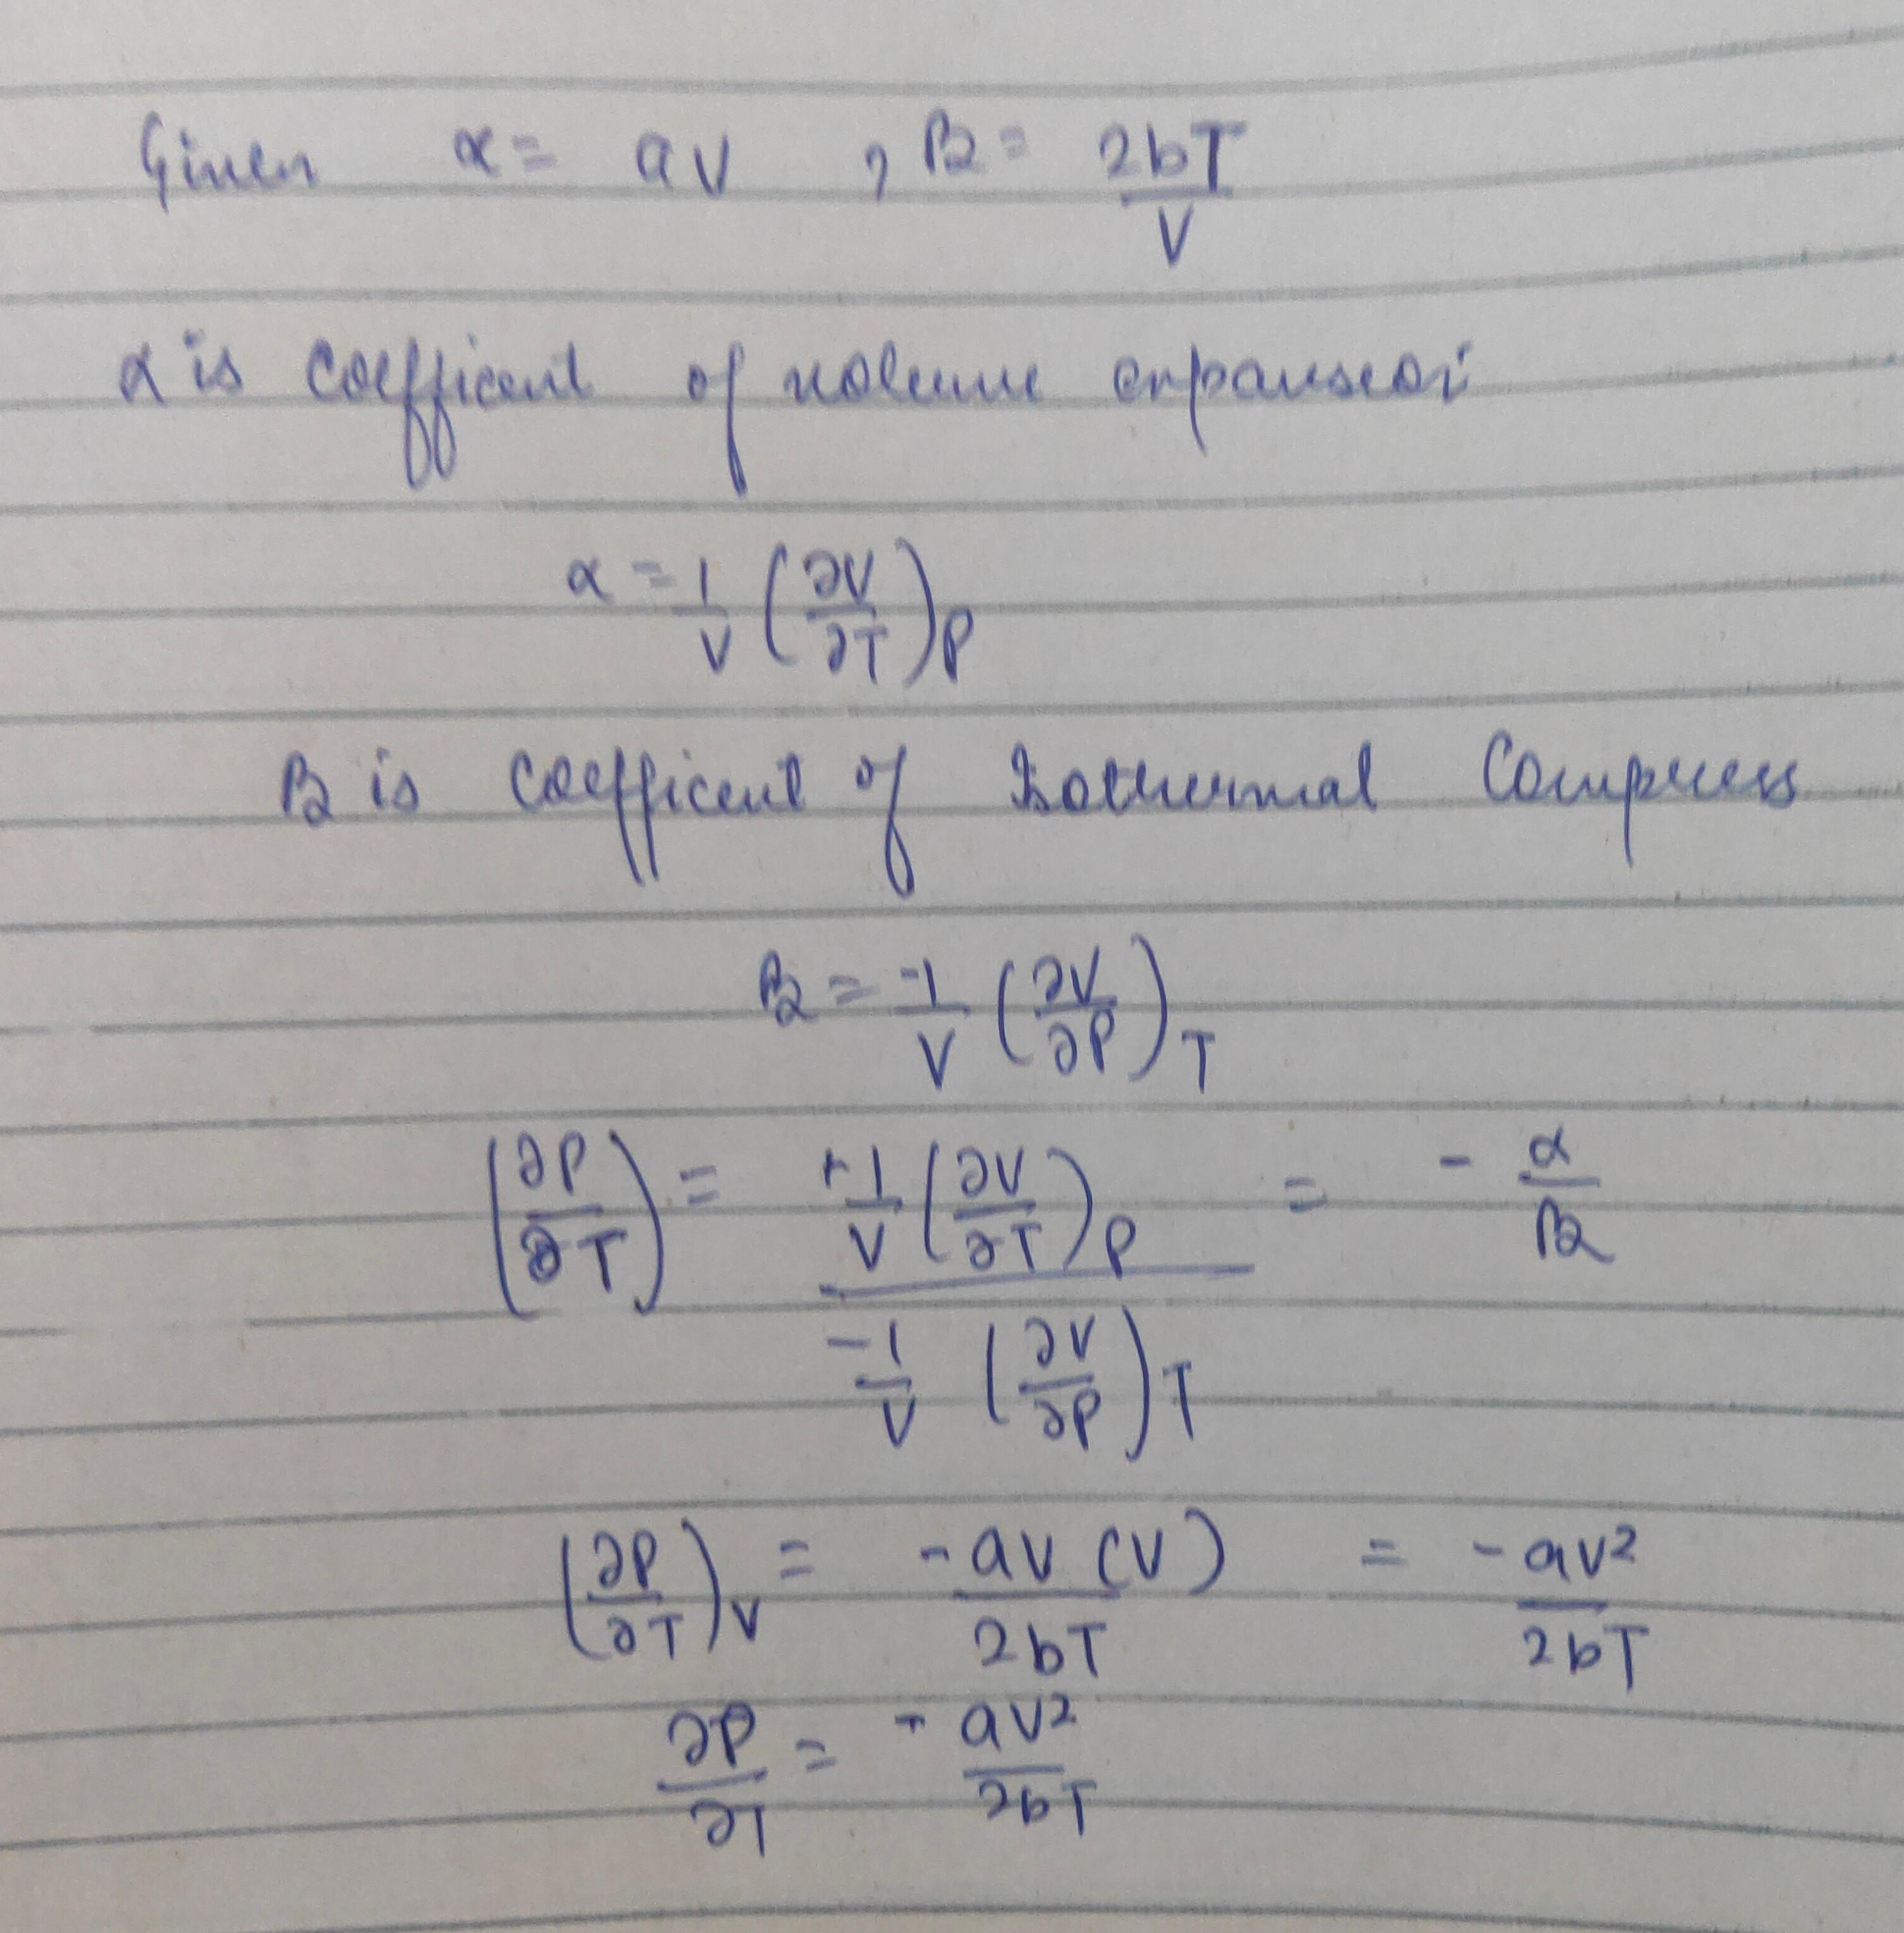 Given α = aV , β = 2bT/V
α is coefficent of volume expansion
α = 1/V (∂V/∂T)P
β is coefficent of Isothermal Compress
β = -1/V (∂V/∂P)T
(∂P/∂T) = +1/V (∂V/∂T)P / -1/V (∂V/∂P)T = - α/β
(∂P/∂T)V = -aV (V)/2bT = -aV²/2bT
∂P/∂T = - aV²/2bT